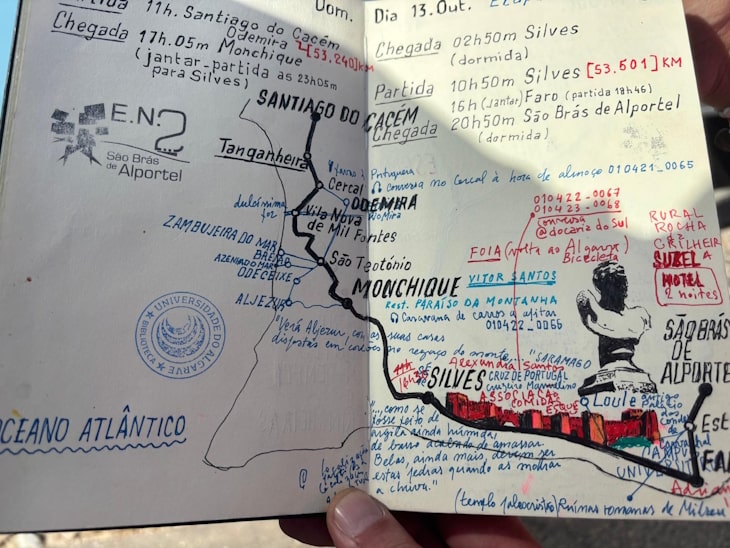 11h. Santiago do Cacém
Odemira [53.240] KM
Chegada 17h.05m Monchique
(jantar-partida às 23h05m
para Silves)
E.N.2
São Brás
de Alportel
SANTIAGO DO CACÉM
Tanganheira
Cercal
ODEMIRA
dulcíssima
foz
Vila Nova
de Mil Fontes
ZAMBUJEIRA DO MAR
BREJÃO
AZENHA DO MAR
ODECEIXE
São Teotónio
ALJEZUR
MONCHIQUE
"Verá Aljezur, com as suas casas
dispostas em
no regaço do monte..." SARAMAGO
UNIVERSIDADE DO ALGARVE
BIBLIOTECA
OCEANO ATLÂNTICO
Dom.
Dia 13.Out.
Chegada 02h50m Silves
(dormida)
Partida 10h50m Silves [53.601] KM
16h (jantar) Faro (partida 18h46)
Chegada 20h50m São Brás de Alportel
(dormida)
Portuguesa
conversa no Cercal à hora de almoço 010421_0065
010422_0067
010423_0068
conversa
@docaria do Sul
FOIA (volta ao Algarve
Bicicleta
VITOR SANTOS
Rest. PARAÍSO DA MONTANHA
Caravana de carros a apitar
010422_0066
RURAL
ROCHA
DA
GRALHEIRA
SUBEL
MOTEL
2 noites
SÃO BRÁS
DE
ALPORTEL
Alexandra Santos
SILVES
CRUZ DE PORTUGAL
ASSOCIAÇÃO
COMIDAS
Loulé
"...como se
fosse feito de
argila ainda húmida,
de barro acabado de amassar.
Belas, ainda mais, devem ser
estas pedras quando as molhar
a chuva."
Est
CAMPUS
FA
(templo paleocristão) Ruínas romanas de Milreu